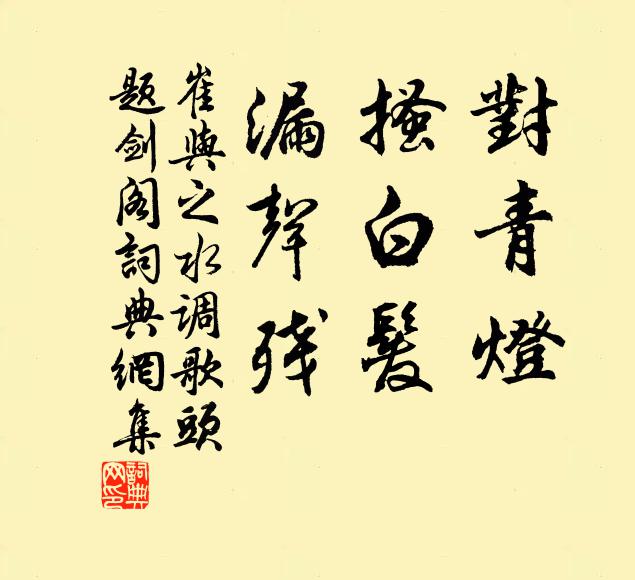 對青燈
搔白髮
漏聲残
崔與之水调歌頭
题劍阁詞典網集
詞典网印